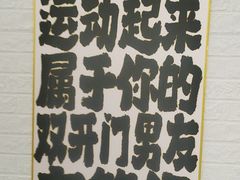 运动起来
属于你的
双开门男友